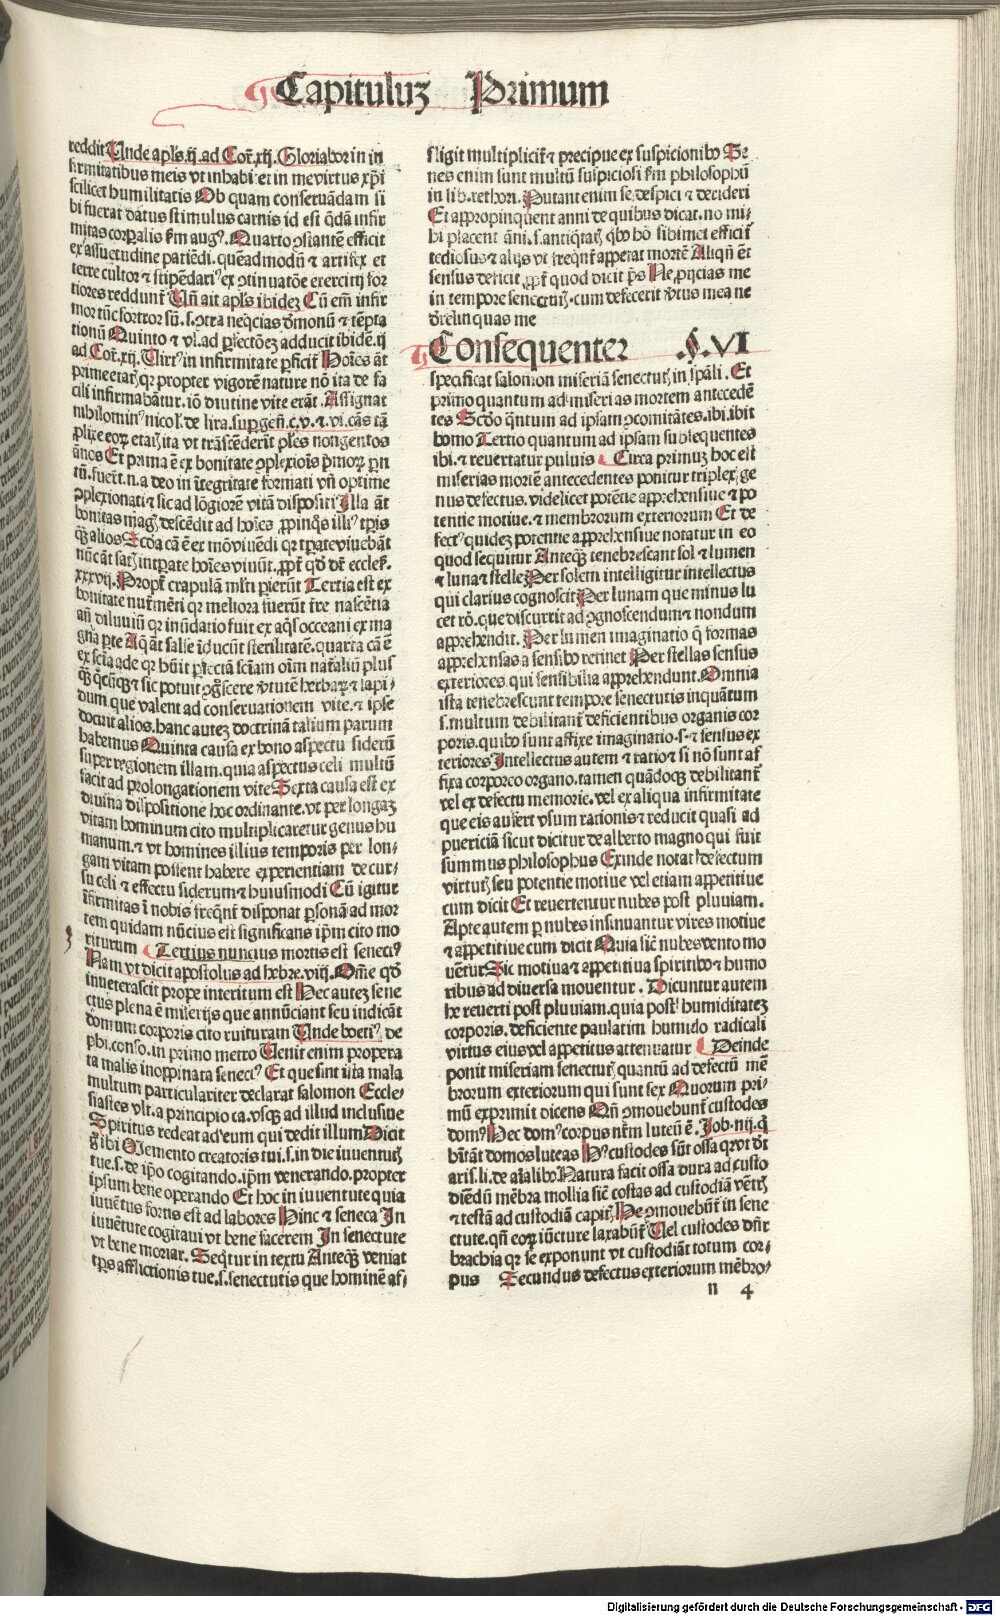 Capituluz Primum
reddit Unde apl's.ij.ad Cor̃.xij. Gloriabor in in
firmitatibus meis vt inhabitet in me virtus xp̄i
scilicet humilitatis Ob quam conseruādam si
bi fuerat datus stimulus carnis id est q̄dā infir
mitas corp̱alis fm augꝰ. Quarto ꝯstantē efficit
ex assuetudine patiēdi. quēadmodū ⁊ artifex et
terre cultor ⁊ stipēdariꝰ ex ꝯtinuatōe exercitij for
tiores reddunt̄ Uñ ait apl's ibidez Cū em̄ infir
mor tūc fortior sū. s. ꝯtra neq̄cias d̄monū ⁊ tēpta
tionū Quinto ⁊ vl. ad p̱fectōez adducit ibidē. ij
ad Cor̃.xij. Uirtꝰ in infirmitate p̱ficit̄ Hoīes āt
prime etatꝭ qꝛ propter vigorē nature nō ita de fa
cili infirmabātur. iō diutine vite erāt. Assignat
nihilominꝰ nicol. de lira. sup̱ geñ. c. v. ⁊. vi. cās tā
ꝓlixe eoꝝ etatꝭ ita vt trāscēderīt pl'es nongentos
ānos Et prima ē ex bonitate ꝯplexiōis p̄moꝝ pñ
tū. fuer̄t. n. a deo in ītegritate formati vñ optime
ꝯplexionati ⁊ sic ad lōgiorē vitā dispositi Illa āt
bonitas magꝭ descēdit ad hoīes ꝓpinq̄s illiꝰ tp̄is
q̈ꝫ alios Scd̄a cā ē ex mō viuēdi qꝛ tp̱ate viuebāt
nūc āt satꝭ intp̱ate hoīes viuūt. ꝓpt̄ qd̄ dt̄ ecclesꝭ.
xxxvij. Propt̄ crapulā ml'ti p̱ierūt Tertia est ex
bonitate nut̄mēti qꝛ meliora fuerūt t̄re nascētia
añ diluuiū qꝛ inūdatio fuit ex aq̄s occeani ex ma
gna p̱te Aq̄ āt salse īducūt sterilitatē. quarta cā ē
ex scīa ade qꝛ hūit p̱fectā sciam oīm nat̄aliū plus
q̈ꝫ q̄cūqꝫ ⁊ sic potuit ꝯgsc̄ere v̄tutē herbaꝝ ⁊ lapi-
dum. que valent ad conseruationem vite. ⁊ ipse
docuit alios. hanc autez doctrinā talium parum
habemus Quinta causa ex bono aspectu siderū
super regionem illam. quia aspectus celi multū
facit ad prolongationem vite Sexta causa est ex
diuina dispositione hoc ordinante. vt per longaz
vitam hominum cito multiplicaretur genus hu
manum. ⁊ vt homines illius temporis per lon-
gam vitam possent habere experientiam de cur-
su celi ⁊ effectu siderum ⁊ huiusmodi Cū igitur
īfirmitas ī nobis freq̄nt̄ disponat p̱sonā ad mor
tem quidam nūcius est significans ip̄m cito mo
riturum Tertius nuncius mortis est senectꝰ
Nam vt dicit apostolus ad hebre. viij. Om̄e qd̄
inueterascit prope interitum est Hec autez sene
ctus plena ē miserijs que annūciant seu indicāt
domum corporis cito ruituram Unde boetiꝰ. de
phi. conso. in primo metro Uenit enim propera
ta malis inopinata senectꝰ Et que sint ista mala
multum particulariter declarat salomon Eccle-
siastes vlt. a principio ca. vsqꝫ ad illud inclusiue
Spiritus redeat ad eum qui dedit illum Dicit
g̊ ibi Memento creatoris tui. s. in die iuuentutꝭ
tue. s. de ip̄o cogitando. ip̄m venerando. propter
ipsum bene operando Et hoc in iuuentute quia
iuuētus fortis est ad labores Hinc ⁊ seneca In
iuuētute cogitaui vt bene facerem In senectute
vt bene moriar. Seq̄tur in textu Anteq̈ꝫ veniat
tp̄s afflictionis tue. s. senectutis que hominē af-
fligit multiplicit̄ ⁊ precipue ex suspicionibꝰ Se
nes enim sunt multū suspiciosi fm philosophū
in lib. rethori. Putant enim se despici ⁊ decideri
Et appropinquent anni de quibus dicat. no mi-
hi placent āni. s. antiq̄tatꝭ q̄bꝰ hō sibimet efficit̄
tediosus ⁊ alijs vt freq̄nt̄ appetat mortē Aliqñ ēt
sensus deficit ꝓpt̄ quod dicit p̄s Ne ꝓijcias me
in tempore senectutꝭ. cum defecerit v̄tus mea ne
d̄relinquas me
Consequenter .§. VI
specificat salomon miseriā senectutꝭ in sp̄ali. Et
primo quantum ad miserias mortem antecedē
tes Scd̄o q̄ntum ad ipsam ꝯcomitātes. ibi. ibit
homo Tertio quantum ad ipsam subsequentes
ibi. ⁊ reuertatur puluis Circa primuz hoc est
miserias mortē antecedentes ponitur triplex ge
nus defectus. videlicet potētie apprehensiue ⁊ po
tentie motiue. ⁊ membrorum exteriorum Et de
fectꝰ quidez potentie apprehensiue notatur in eo
quod sequitur Anteq̈ꝫ tenebrescant sol ⁊ lumen
⁊ luna ⁊ stelle Per solem intelligitur intellectus
qui clarius cognoscit Per lunam que minus lu
cet rō. que discurrit ad ꝯgnoscendum ⁊ nondum
apprehendit. Per lumen imaginatio q̄ formas
apprehensas a sensibꝰ retinet Per stellas sensus
exteriores. qui sensibilia apprehendunt. Omnia
ista tenebrescunt tempore senectutis inquātum
s. multum debilitant̄ deficientibus organis cor
poris. quibꝰ sunt affixe imaginatio. s. ⁊ sensus ex
teriores Intellectus autem ⁊ ratio ⁊ si nō sunt af
fixa corporeo organo. tamen quādoqꝫ debilitant̄
vel ex defectu memorie. vel ex aliqua infirmitate
que eis aufert vsum rationis ⁊ reducit quasi ad
puericiā sicut dicitur de alberto magno qui fuit
summus philosophus Exinde notat̄ defectum
virtutꝭ seu potentie motiue vel etiam appetitiue
cum dicit Et reuertentur nubes post pluuiam.
Apte autem p̱ nubes insinuantur vires motiue
⁊ appetitiue cum dicit Quia sic̄ nubes vento mo
uētur Sic motiua ⁊ appetitiua spiritibꝰ ⁊ humo
ribus ad diuersa mouentur. Dicuntur autem
he reuerti post pluuiam. quia postꝭ humiditatez
corporis. deficiente paulatim humido radicali
virtus eius vel appetitus attenuatur Deinde
ponit miseriam senectutꝭ quantū ad defectū mē
brorum exteriorum qui sunt sex Quorum pri-
mū exprimit dicens Qñ ꝯmouebunt̄ custodes
domꝰ Hec domꝰ corpus nr̄m luteū ē. Job. iiij. q̄
hītāt domos luteas Hꝰ custodes sūt ossa qꝛ vt dt̄
aris. li. de aīalibꝰ Natura facit ossa dura ad custo
diēdū mēbra mollia sic̄ costas ad custodiā vētrꝭ
⁊ testā ad custodiā capitꝭ He ꝯmouebūt̄ in sene
ctute. qñ eoꝝ iūcture laxabūt̄ Uel custodes dn̄r
brachia qꝛ se exponunt vt custodiāt totum cor-
pus Secundus defectus exteriorum mēbro-
n 4
Digitalisierung gefördert durch die Deutsche Forschungsgemeinschaft - DFG